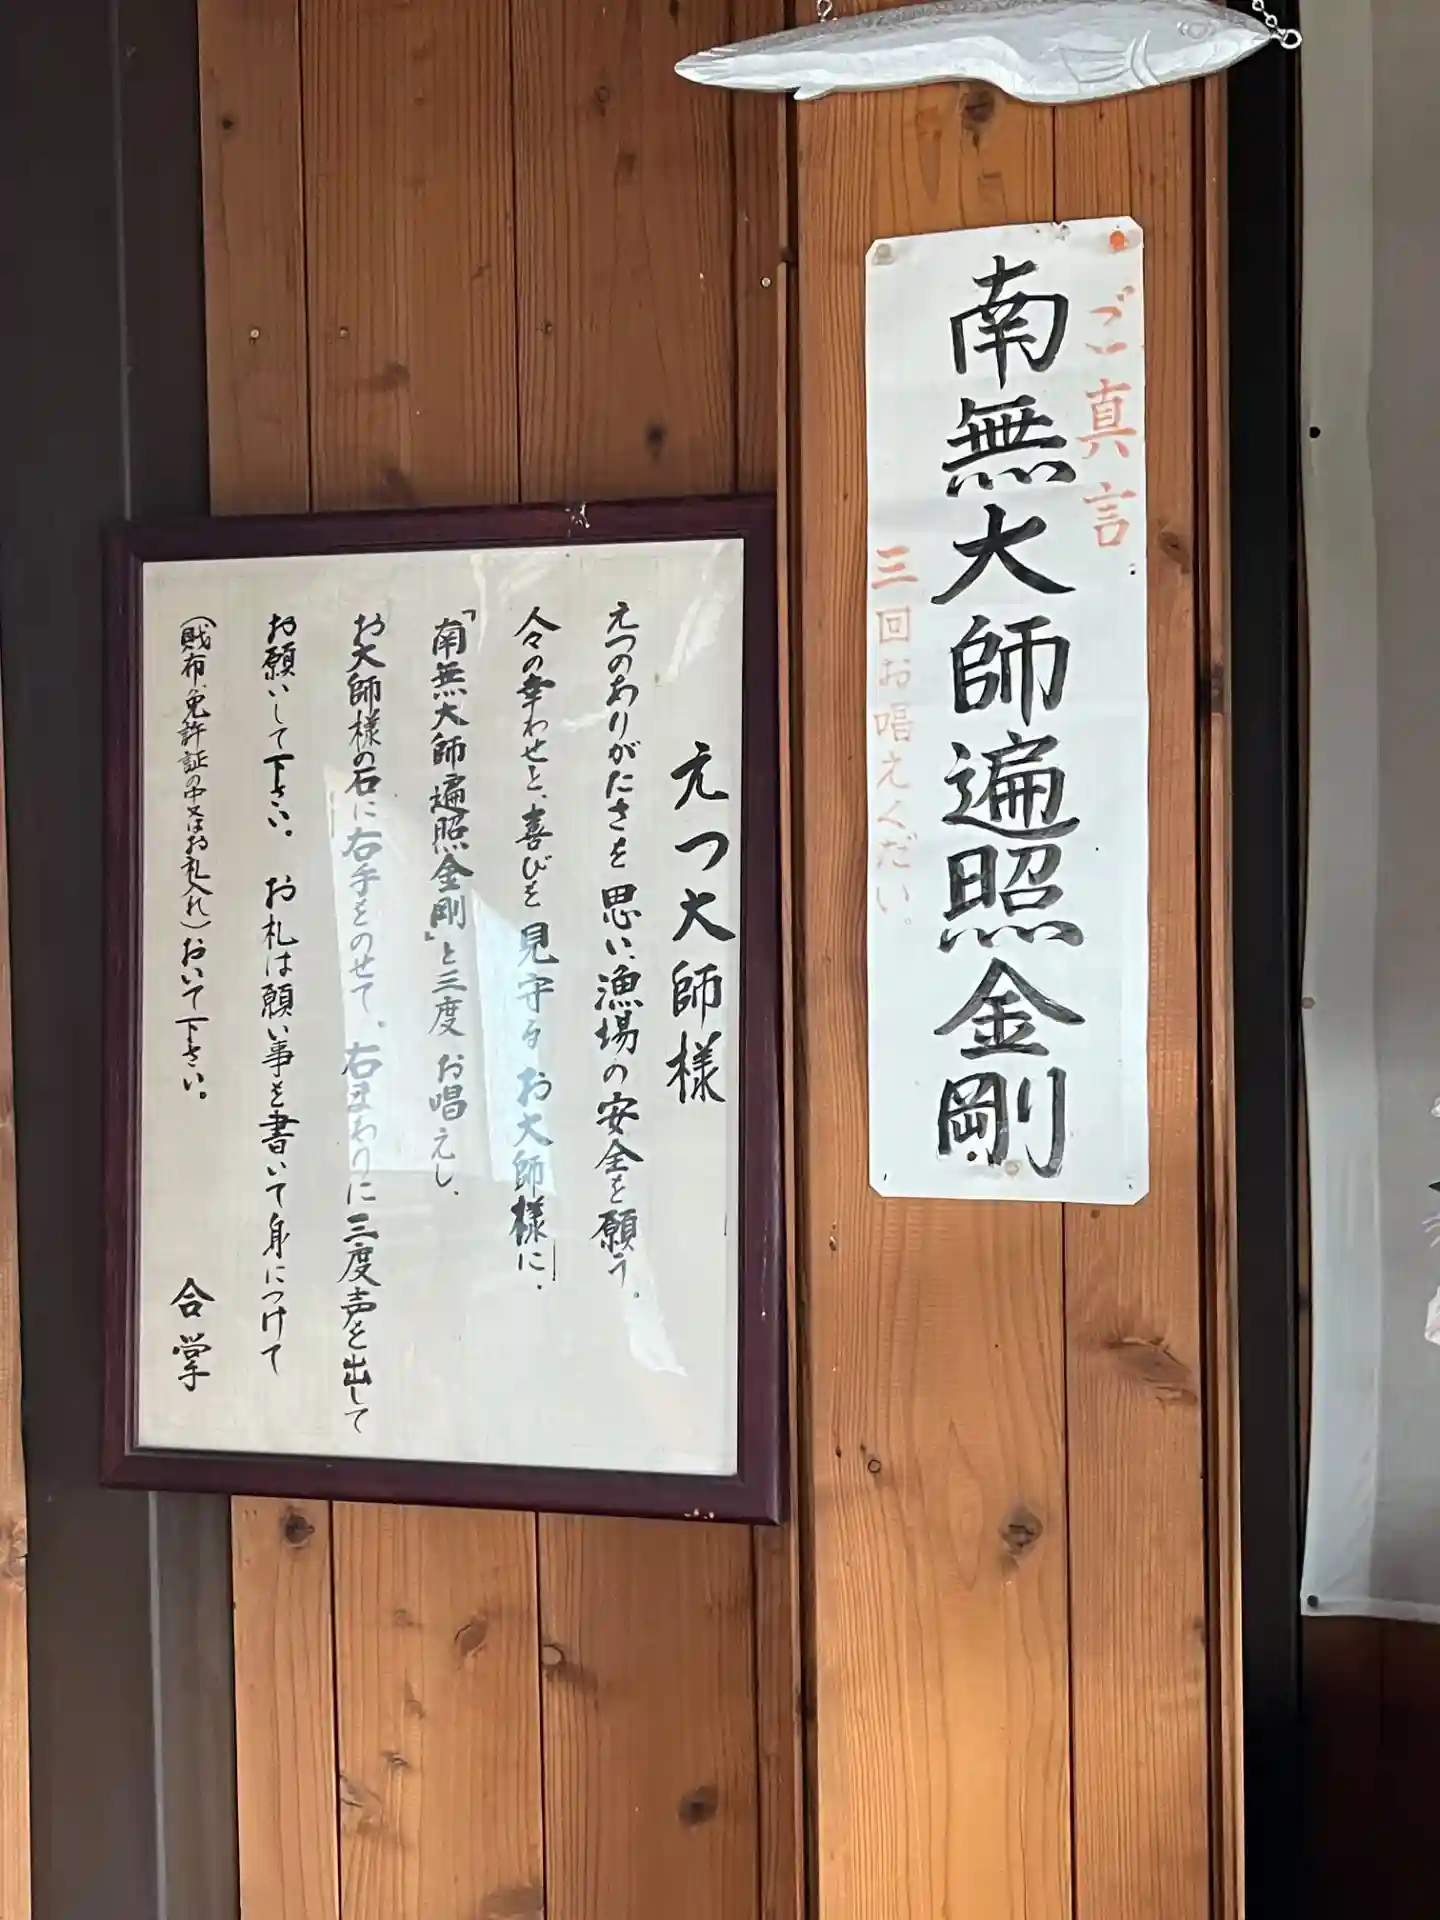 ご真言
南無大師遍照金剛
三回お唱えください。
えつ大師様
えつのありがたさを思い、漁場の安全を願う。
人々の幸わせと、喜びを見守るお大師様に、
「南無大師遍照金剛」と三度お唱えし、
お大師様の石に右手をのせて、右まわりに三度声を出して
お願いして下さい。お札は願い事を書いて身につけて
(財布、免許証の中又はお札入れ)おいて下さい。
合掌